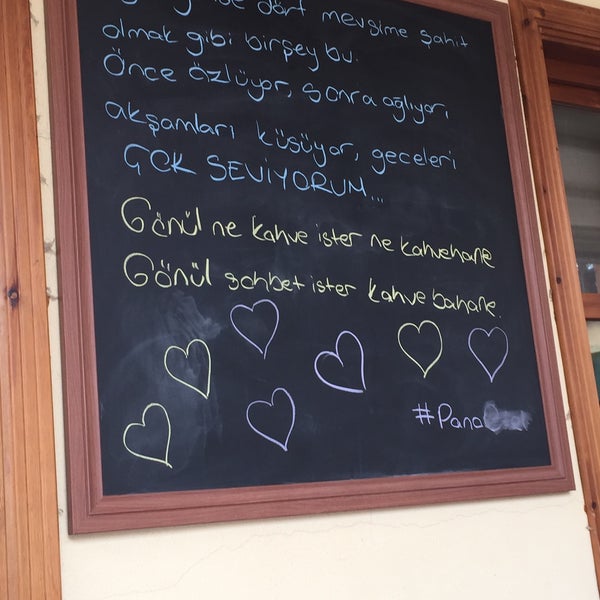 dört mevsime şahit
olmak gibi birşey bu.
Önce özlüyor, sonra ağlıyor,
akşamları küsüyor, geceleri
ÇOK SEVİYORUM...
Gönül ne kahve ister ne kahvehane
Gönül sohbet ister kahve bahane.